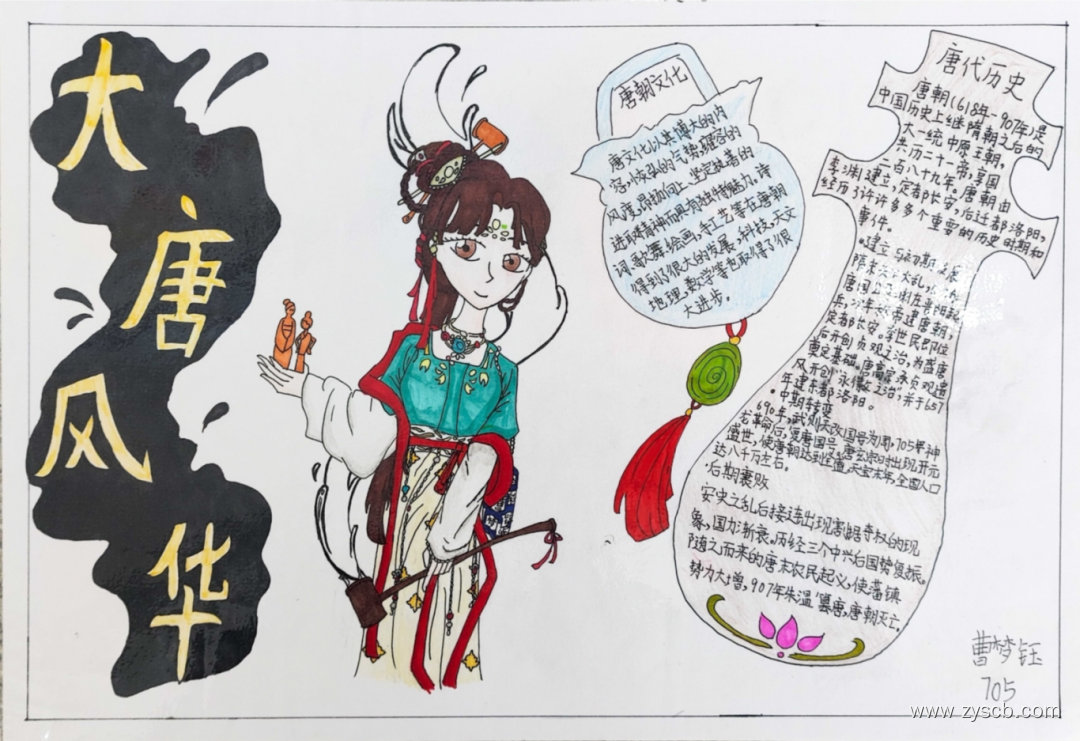 大
唐
风
华
唐朝文化
唐文化以其博大的内
容，恢弘的气势，雍容的
风度，昂扬向上、坚定执着的
进取精神而具有独特魅力，诗
词、歌舞、绘画、手工艺等在唐朝
得到了很大的发展，科技，天文
地理、数学等也取得了很
大进步。
唐代历史
唐朝（618年-907年）是
中国历史上继隋朝之后的
大一统中原王朝，
共历二十一帝，享国
二百八十九年。唐朝由
李渊建立，定都长安，后迁都洛阳，
经历了许许多多个重要的历史时期和
事件。
隋末天下大乱，
唐国公李渊在晋阳起
兵，次年称帝建唐朝，
定都长安。李世民即位
后开创贞观之治，为盛唐
奠定基础。唐高宗承贞观遗
风开创“永徽之治”，并于657
年建东都洛阳。
·中期转变
690年，武则天改国号为周，705年神
龙革命后，复唐国号。唐玄宗时出现开元
盛世，使唐朝达到全盛，天宝末年，全国人口
达八千万左右。
·后期衰败
安史之乱后接连出现宦官夺权的现
象，国力渐衰，历经三个中兴后国势复振。
随之而来的唐末农民起义，使藩镇
势力大增，907年朱温篡唐，唐朝灭亡。
曹梦钰
705
www.zyscb.com